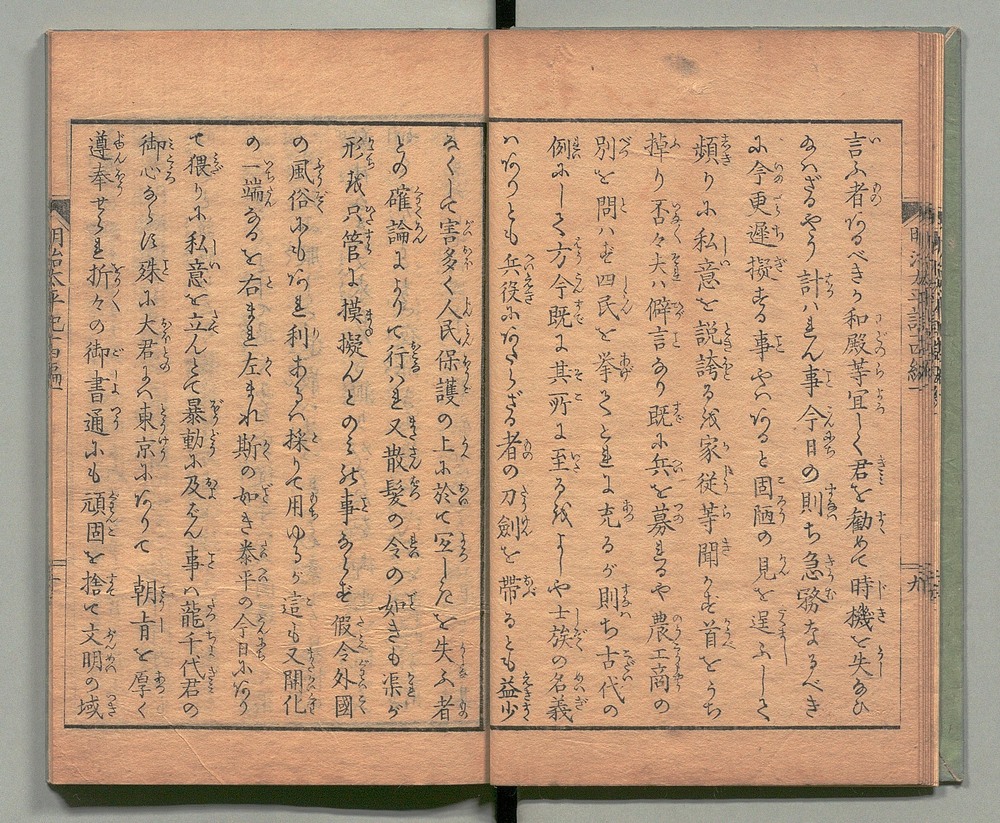 言ふ者あるべきか和殿等宜しく君を勧めて時機を失なひ
あはざるやう計はん事今日の則ち急務なるべき
に今更遅擬する事やはあると固陋の見を逞ふしして
頻りに私意を説誇るを家従等聞かず首をうち
掉り否々夫は僻言なり既に兵を募るや農工商の
別を問はず四民を挙てとれに充るが則ち古代の
例にして方今既に其所に至るをよしや士族の名義
はありとも兵役にあたらざる者の刀剣を帯るとも益少
なくして害多く人民保護の上に於て宜しきを失ふ者
との確論によりて行はれ又散髪の令の如きも渠が
形を只管に摸擬んとのみの事ならず假令外國
の風俗にもあれ利あらバ採りて用ゆるが這も又開化
の一端なるを右まれ左まれ斯の如き泰平の今日にあり
て猥りに私意を立んとて暴動に及ばん事は龍千代君の
御心ならず殊に大君にハ東京にありて 朝旨を厚く
遵奉せられ折々の御書通にも頑固を捨て文明の域
明治太平記十四編